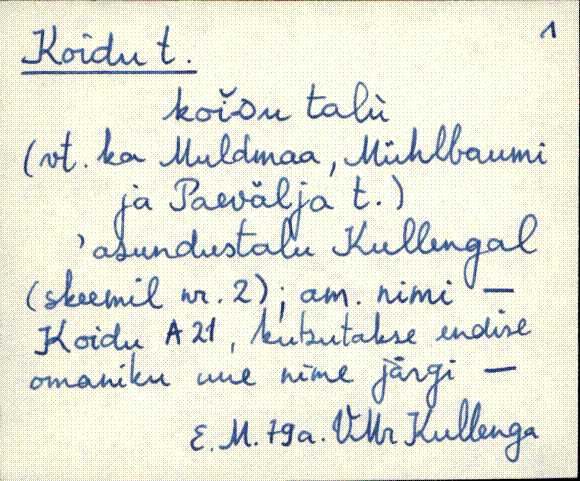 1
Koidu t.
koiᴅu talù
(vt. ka Muldmaa, Mühlbaumi
ja Paevälja t.)
'asundustalu Kullengal
(skeemil nr. 2); am. nimi —
Koidu A 21, kutsutakse endise
omaniku uue nime järgi —
E. M. 79a. VMr Kullenga